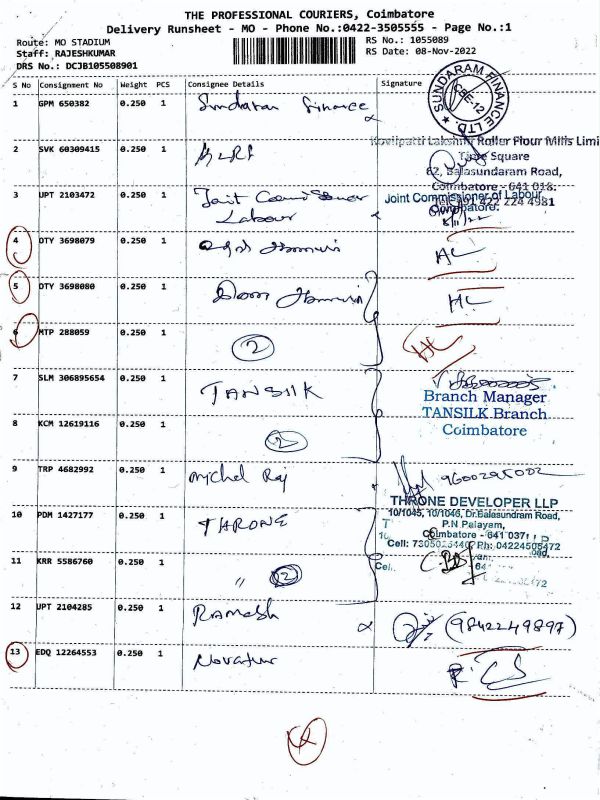 THE PROFESSIONAL COURIERS, Coimbatore
Delivery Runsheet - MO - Phone No.:0422-3505555 - Page No.:1
Route: MO STADIUM
RS No.: 1055089
Staff: RAJESHKUMAR
RS Date: 08-Nov-2022
DRS No.: DCJB105508901
S No Consignment No Weight PCS Consignee Details Signature
1 GPM 650382 0.250 1 Sundaram Finance
SUNDARAM FINANCE LTD.
CBE-12
2 SVK 60309415 0.250 1
Kovilpatti Lakshmi Roller Flour Mills Limi
Square
62, Balasundaram Road,
Coimbatore - 641 018.
3 UPT 2103472 0.250 1 Joint Commissioner
Labour
Joint Commissioner of Labour
Coimbatore.
422 224 4981
4 DTY 3698079 0.250 1
5 DTY 3698080 0.250 1
6 MTP 288059 0.250 1
2
7 SLM 306895654 0.250 1 TANSILK
Branch Manager
TANSILK Branch
Coimbatore
8 KCM 12619116 0.250 1
2
9 TRP 4682992 0.250 1 Michel Raj
10 PDM 1427177 0.250 1 THRONE
THRONE DEVELOPER LLP
10/1045, 10/1046, Dr.Balasundaram Road,
P.N Palayam,
Coimbatore - 641 037
Ph: 04224505472
11 KRR 5586760 0.250 1 " 2
12 UPT 2104285 0.250 1 Ramesh
(9842249897)
13 EDQ 12264553 0.250 1